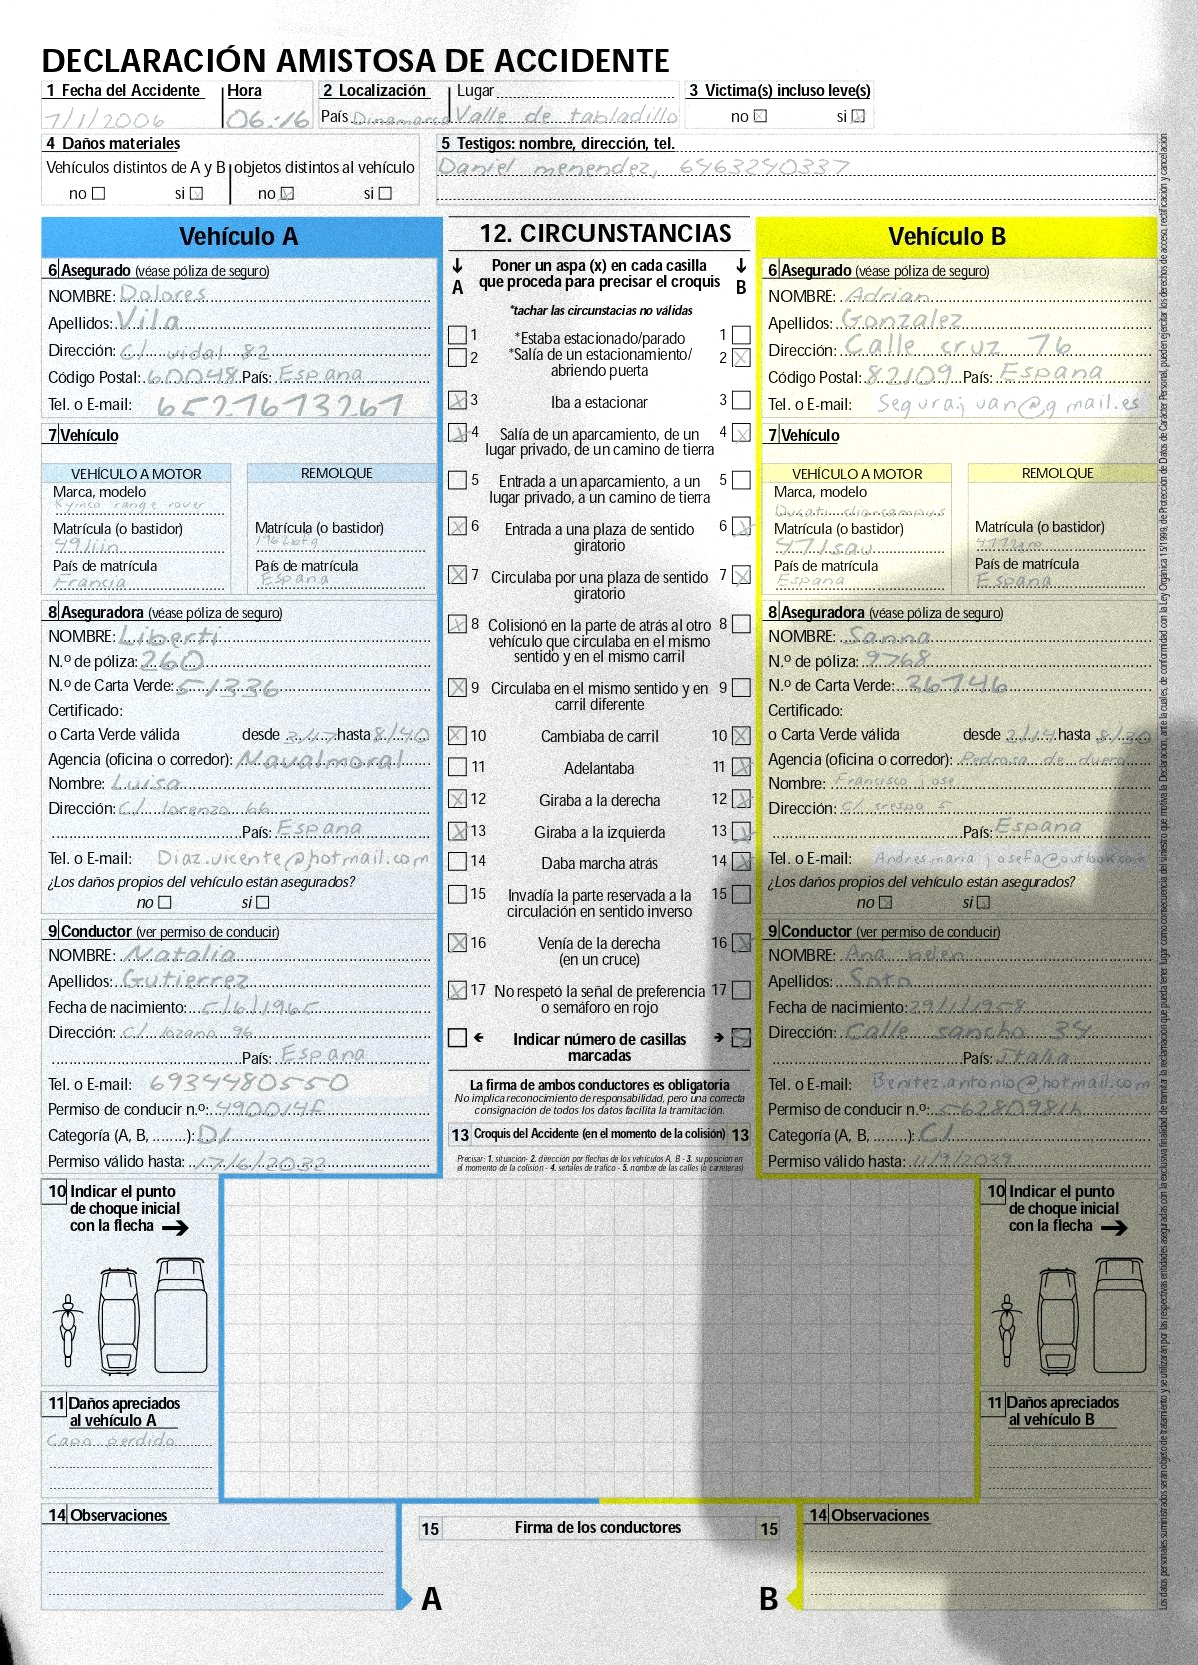 DECLARACIÓN AMISTOSA DE ACCIDENTE
1 Fecha del Accidente Hora 2 Localización Lugar 3 Victima(s) incluso leve(s)
7/1/2006 06:16 País Dinamarca Valle de tabladillo no si
4 Daños materiales 5 Testigos: nombre, dirección, tel.
Vehículos distintos de A y B objetos distintos al vehículo Daniel menendez, 6463240337
no si no si
Vehículo A
6 Asegurado (véase póliza de seguro)
NOMBRE: Dolores
Apellidos: Vila
Dirección: C/ vidal 82
Código Postal: 60048 País: Espana
Tel. o E-mail: 6521613261
7 Vehículo
VEHÍCULO A MOTOR REMOLQUE
Marca, modelo
Kymco range rover
Matrícula (o bastidor) Matrícula (o bastidor)
País de matrícula País de matrícula
Francia Espana
8 Aseguradora (véase póliza de seguro)
NOMBRE: Liberti
N.º de póliza: 260
N.º de Carta Verde: 51336
Certificado:
o Carta Verde válida desde 3/17 hasta 8/40
Agencia (oficina o corredor): Navalmoral
Nombre: Luisa
Dirección: C/ lorenzo 66
País: Espana
Tel. o E-mail: Diaz.vicente@hotmail.com
¿Los daños propios del vehículo están asegurados?
no si
9 Conductor (ver permiso de conducir)
NOMBRE: Natalia
Apellidos: Gutierrez
Fecha de nacimiento: 5/6/1965
Dirección: C/ lozano 96
País: Espana
Tel. o E-mail: 6934480550
Permiso de conducir n.º: 490014f
Categoría (A, B, ........): D1
Permiso válido hasta: 17/6/2032
10 Indicar el punto
de choque inicial
con la flecha
11 Daños apreciados
al vehículo A
Capo perdido
14 Observaciones
12. CIRCUNSTANCIAS
A Poner un aspa (x) en cada casilla B
que proceda para precisar el croquis
*tachar las circunstacias no válidas
1 *Estaba estacionado/parado 1
2 *Salía de un estacionamiento/ 2
abriendo puerta
3 Iba a estacionar 3
4 Salía de un aparcamiento, de un 4
lugar privado, de un camino de tierra
5 Entrada a un aparcamiento, a un 5
lugar privado, a un camino de tierra
6 Entrada a una plaza de sentido 6
giratorio
7 Circulaba por una plaza de sentido 7
giratorio
8 Colisionó en la parte de atrás al otro 8
vehículo que circulaba en el mismo
sentido y en el mismo carril
9 Circulaba en el mismo sentido y en 9
carril diferente
10 Cambiaba de carril 10
11 Adelantaba 11
12 Giraba a la derecha 12
13 Giraba a la izquierda 13
14 Daba marcha atrás 14
15 Invadía la parte reservada a la 15
circulación en sentido inverso
16 Venía de la derecha 16
(en un cruce)
17 No respetó la señal de preferencia 17
o semáforo en rojo
Indicar número de casillas
marcadas
La firma de ambos conductores es obligatoria
No implica reconocimiento de responsabilidad, pero una correcta
consignación de todos los datos facilita la tramitación.
13 Croquis del Accidente (en el momento de la colisión) 13
Precisar: 1. situación- 2. dirección por flechas de los vehículos A, B - 3. su posición en
el momento de la colisión - 4. señales de tráfico - 5. nombre de las calles (o carreteras)
15 Firma de los conductores 15
A B
Vehículo B
6 Asegurado (véase póliza de seguro)
NOMBRE: Adrian
Apellidos: Gonzalez
Dirección: Calle cruz 76
Código Postal: 82109 País: Espana
Tel. o E-mail: Segurajuan@gmail.es
7 Vehículo
VEHÍCULO A MOTOR REMOLQUE
Marca, modelo
Ducati
Matrícula (o bastidor) Matrícula (o bastidor)
471sau
País de matrícula País de matrícula
Espana Espana
8 Aseguradora (véase póliza de seguro)
NOMBRE: Sanna
N.º de póliza: 9768
N.º de Carta Verde: 36746
Certificado:
o Carta Verde válida desde 2/14 hasta 8/30
Agencia (oficina o corredor): Pedrosa de duero
Nombre: Francisco jose
Dirección: C/ crespo 5
País: Espana
Tel. o E-mail: Andres.maria josefa@outlook.com
¿Los daños propios del vehículo están asegurados?
no si
9 Conductor (ver permiso de conducir)
NOMBRE: Ana belen
Apellidos: Soto
Fecha de nacimiento: 29/1/1958
Dirección: Calle sancho 34
País: Italia
Tel. o E-mail: Benitez.antonio@hotmail.com
Permiso de conducir n.º:
Categoría (A, B, ........): C1
Permiso válido hasta: 11/9/2039
10 Indicar el punto
de choque inicial
con la flecha
11 Daños apreciados
al vehículo B
14 Observaciones